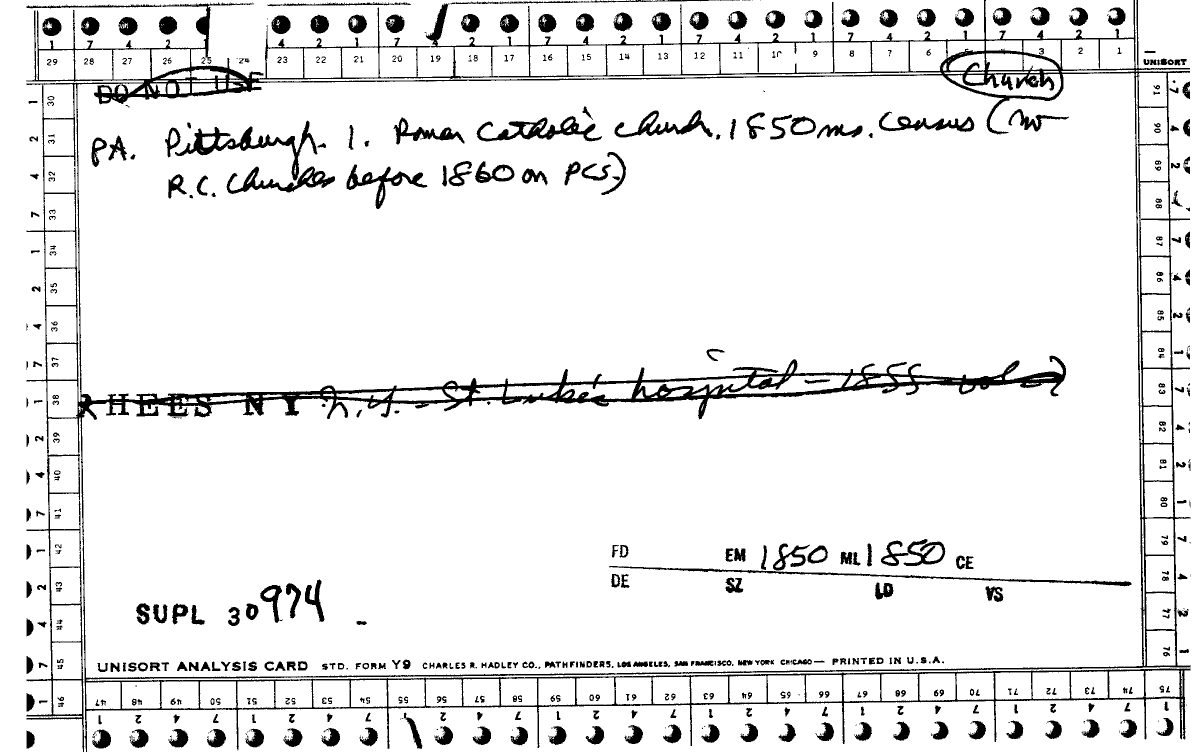 1 7 4 2 4 2 1 7 4 2 1 7 4 2 1 7 4 2 1 7 4 2 1
29 28 27 26 25 24 23 22 21 20 19 18 17 16 15 14 13 12 11 10 9 8 7 6 3 2 1
UNISORT
DO NOT USE
Church
PA. Pittsburgh. 1. Roman Catholic church. 1850 ms. census (no
R.C. churches before 1860 on PCS.)
RHEES NY N.Y. - St. Luke's hospital - 1855 - vol - ?
FD EM 1850 ML 1850 CE
DE SZ LD VS
SUPL 30974 -
UNISORT ANALYSIS CARD STD. FORM Y9 CHARLES R. HADLEY CO., PATHFINDERS, LOS ANGELES, SAN FRANCISCO, NEW YORK CHICAGO — PRINTED IN U.S.A.
1 30
2 31
4 32
7 33
1 34
2 35
4 36
7 37
1 38
2 39
4 40
7 41
1 42
2 43
4 44
7 45
1 46
91
90
89
88
87
86
85
84
83
82
81
80
79
78
77
76
47 48 49 50 51 52 53 54 55 56 57 58 59 60 61 62 63 64 65 66 67 68 69 70 71 72 73 74 75
1 2 4 7 1 2 4 7 2 4 7 1 2 4 7 1 2 4 7 1 2 4 7 1 2 4 7 1